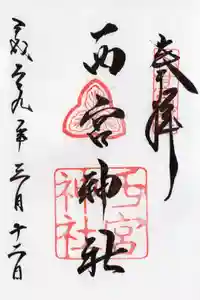 奉拝
西宮神社
西宮
神社
平成二十九年三月十二日